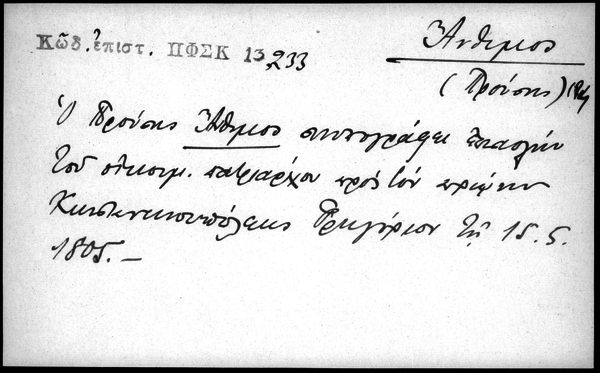 Κῶδ. ἐπιστ. ΠΦΣΚ 13,233
Ἄνθιμος
(Προύσης)
Ὁ Προύσης Ἄνθιμος συνυπογράφει ἐπιστολήν
τοῦ οἰκουμ. πατριάρχου πρὸς τὸν πρώην
Κωνσταντινουπόλεως Γρηγόριον τῇ 15.5.
1805.–